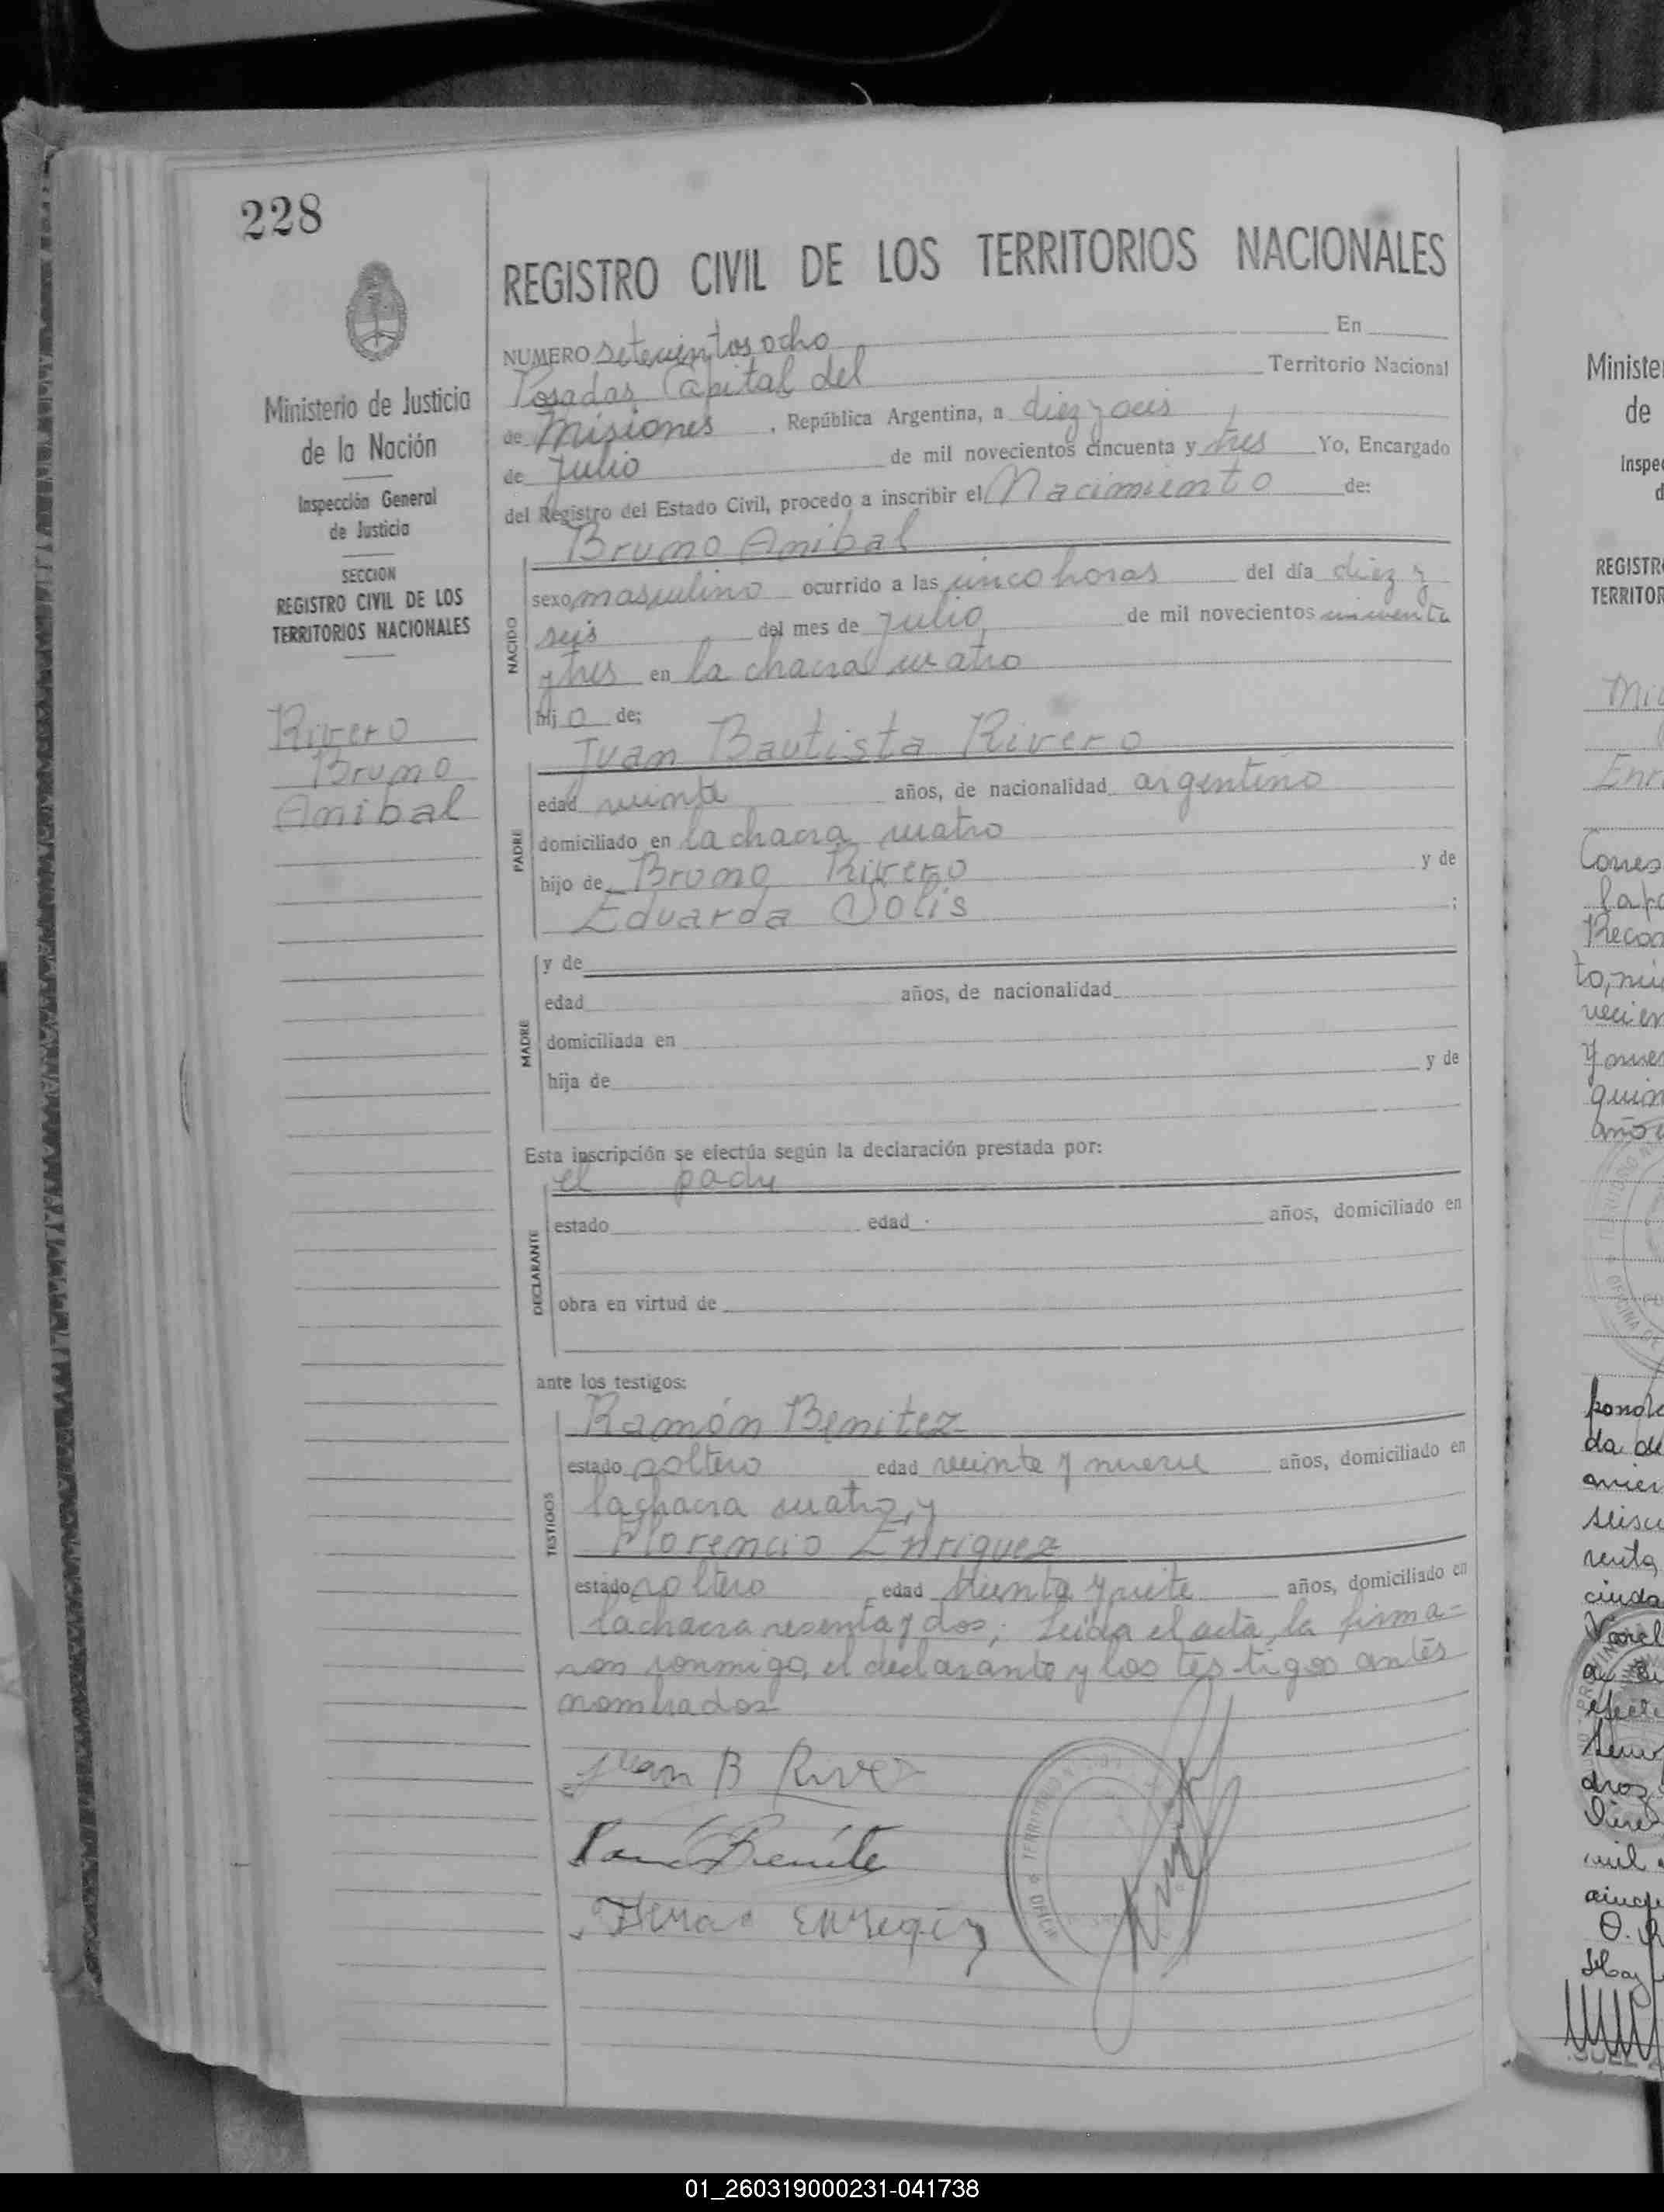 228
REGISTRO CIVIL DE LOS TERRITORIOS NACIONALES
Ministerio de Justicia
de la Nación
Inspección General
de Justicia
SECCION
REGISTRO CIVIL DE LOS
TERRITORIOS NACIONALES
Rivero
Bruno
Anibal
NUMERO setecientos ocho En
Posadas, Capital del Territorio Nacional
de Misiones, República Argentina, a diez y seis
de julio de mil novecientos cincuenta y tres Yo, Encargado
del Registro del Estado Civil, procedo a inscribir el Nacimiento de:
Bruno Anibal
NACIDO
sexo masculino ocurrido a las cinco horas del día diez y
seis del mes de julio de mil novecientos cincuenta
y tres en la chacra cuatro
hij o de:
Juan Bautista Rivero
PADRE
edad veinte años, de nacionalidad argentino
domiciliado en la chacra cuatro
hijo de Bruno Rivero y de
Eduarda Solis ;
MADRE
y de
edad años, de nacionalidad
domiciliada en
hija de y de
Esta inscripción se efectúa según la declaración prestada por:
el padre
DECLARANTE
estado edad años, domiciliado en
obra en virtud de
ante los testigos:
Ramón Benitez
TESTIGOS
estado soltero edad veinte y nueve años, domiciliado en
la chacra cuatro, y
Florencio Enriquez
estado soltero edad treinta y siete años, domiciliado en
la chacra sesenta y dos; Leida el acta, la firma=
ron conmigo, el declarante y los testigos antes
nombrados
Juan B Rivero
Benite
TERRITORIO
Ministe
de
Inspe
d
REGISTR
TERRITOR
Enr
Corres
Recon
01_260319000231-041738